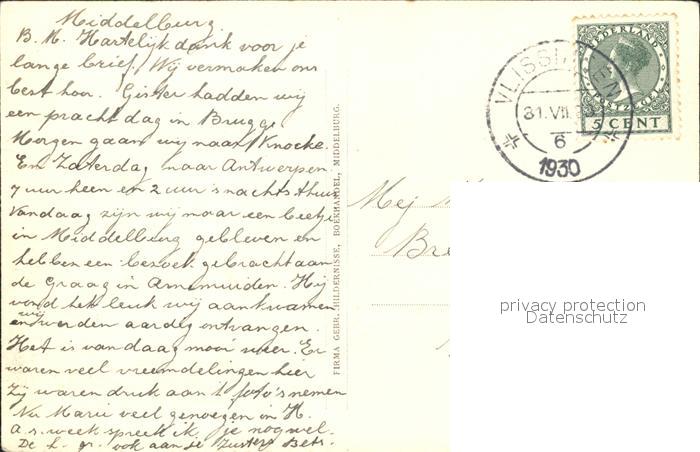 Middelburg
B. M. Hartelijk dank voor je
lange brief. Wij vermaken ons
best hoor. Gister hadden wij
een prachtdag in Brugge
Morgen gaan wij naar Knocke.
En Zaterdag naar Antwerpen.
7 uur heen en 2 uur 's nachts thuis
Vandaag zijn wij maar een beetje
in Middelburg gebleven en
hebben een bezoek gebracht aan
de Graag in Arnemuiden. Hij
vond het leuk wij aankwamen
en wij werden aardig ontvangen.
Het is vandaag mooi weer. Er
waren veel vreemdelingen hier
Zij waren druk aan 't foto's nemen
Nu Marie veel genoegen in H.
a.s. week spreek ik je nog wel.
De h. gr. ook aan je Zusters Bets.
FIRMA GEBR. HILDERNISSE, BOEKHANDEL, MIDDELBURG.
VLISSINGEN
31.VII
6
1930
NEDERLAND
POSTZEGEL
5 CENT
Mej
Bre
privacy protection
Datenschutz